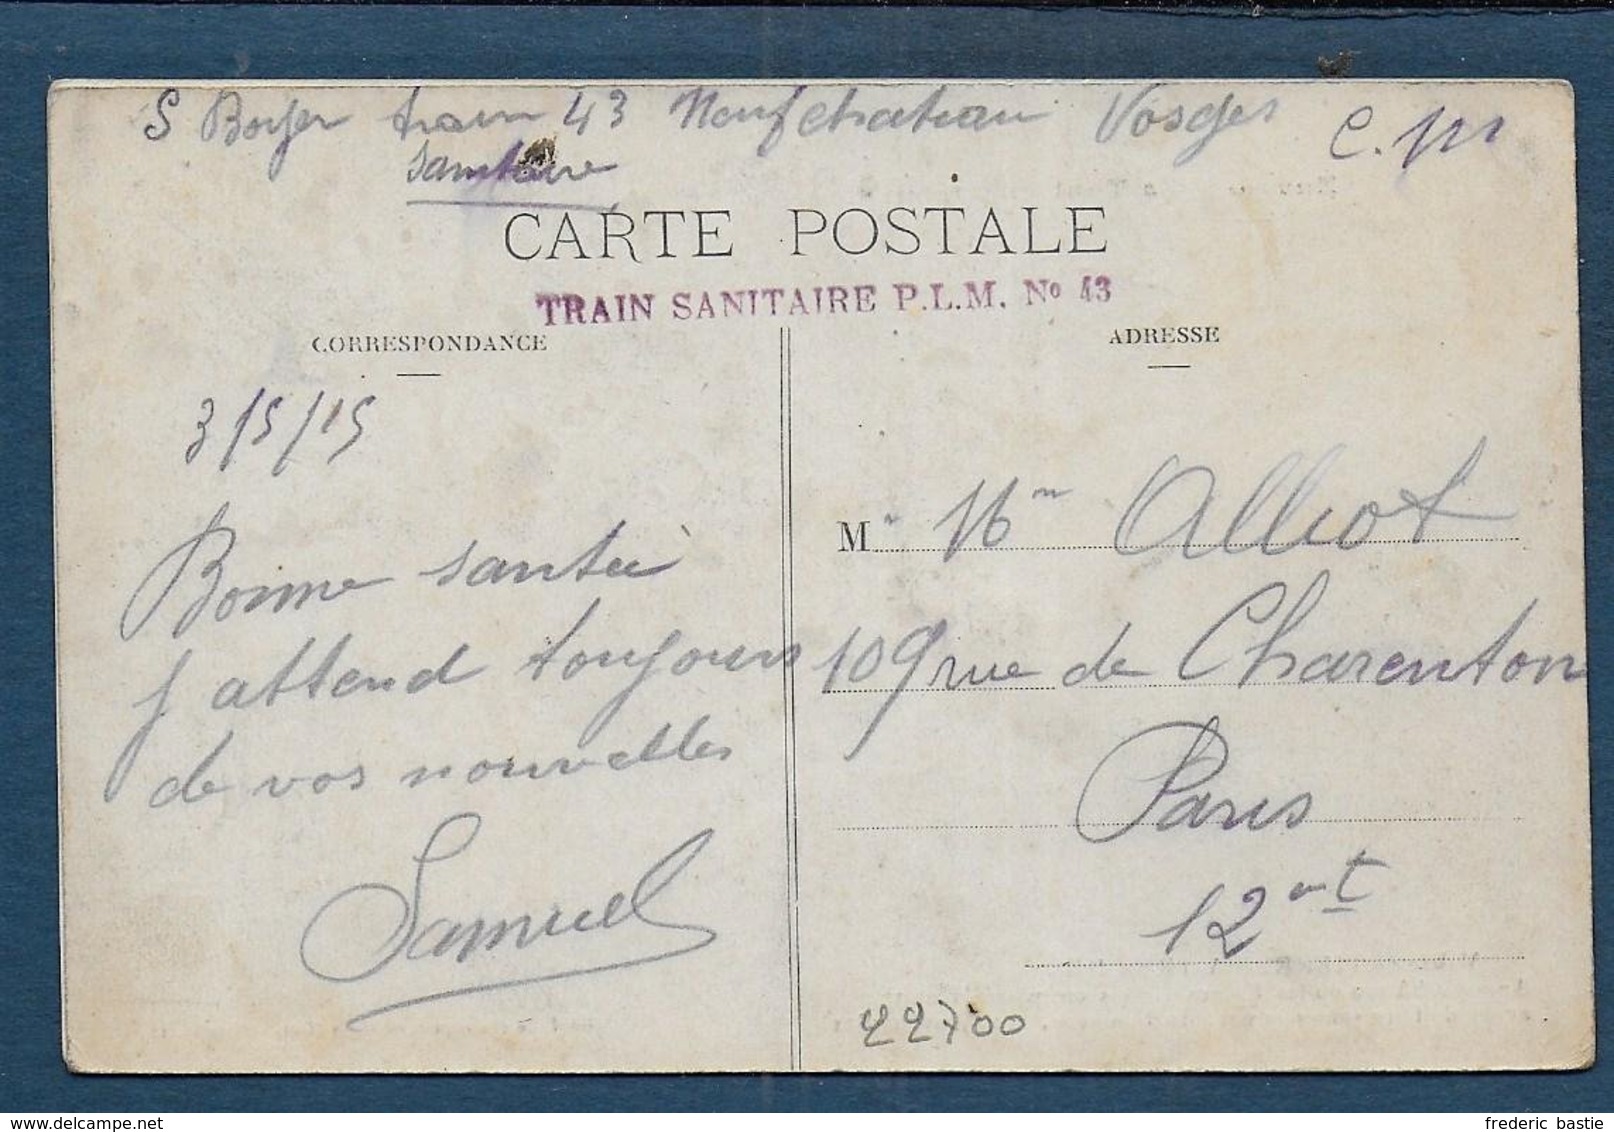 S Boyer train 43 Neufchateau Vosges C. M
sanitaire
CARTE POSTALE
TRAIN SANITAIRE P.L.M. No 43
CORRESPONDANCE
ADRESSE
3/5/15
Bonne santée
j attend toujours
de vos nouvelles
Samuel
M. Mm Alliot
109 rue de Charenton
Paris
12 art
22700
frederic bastie